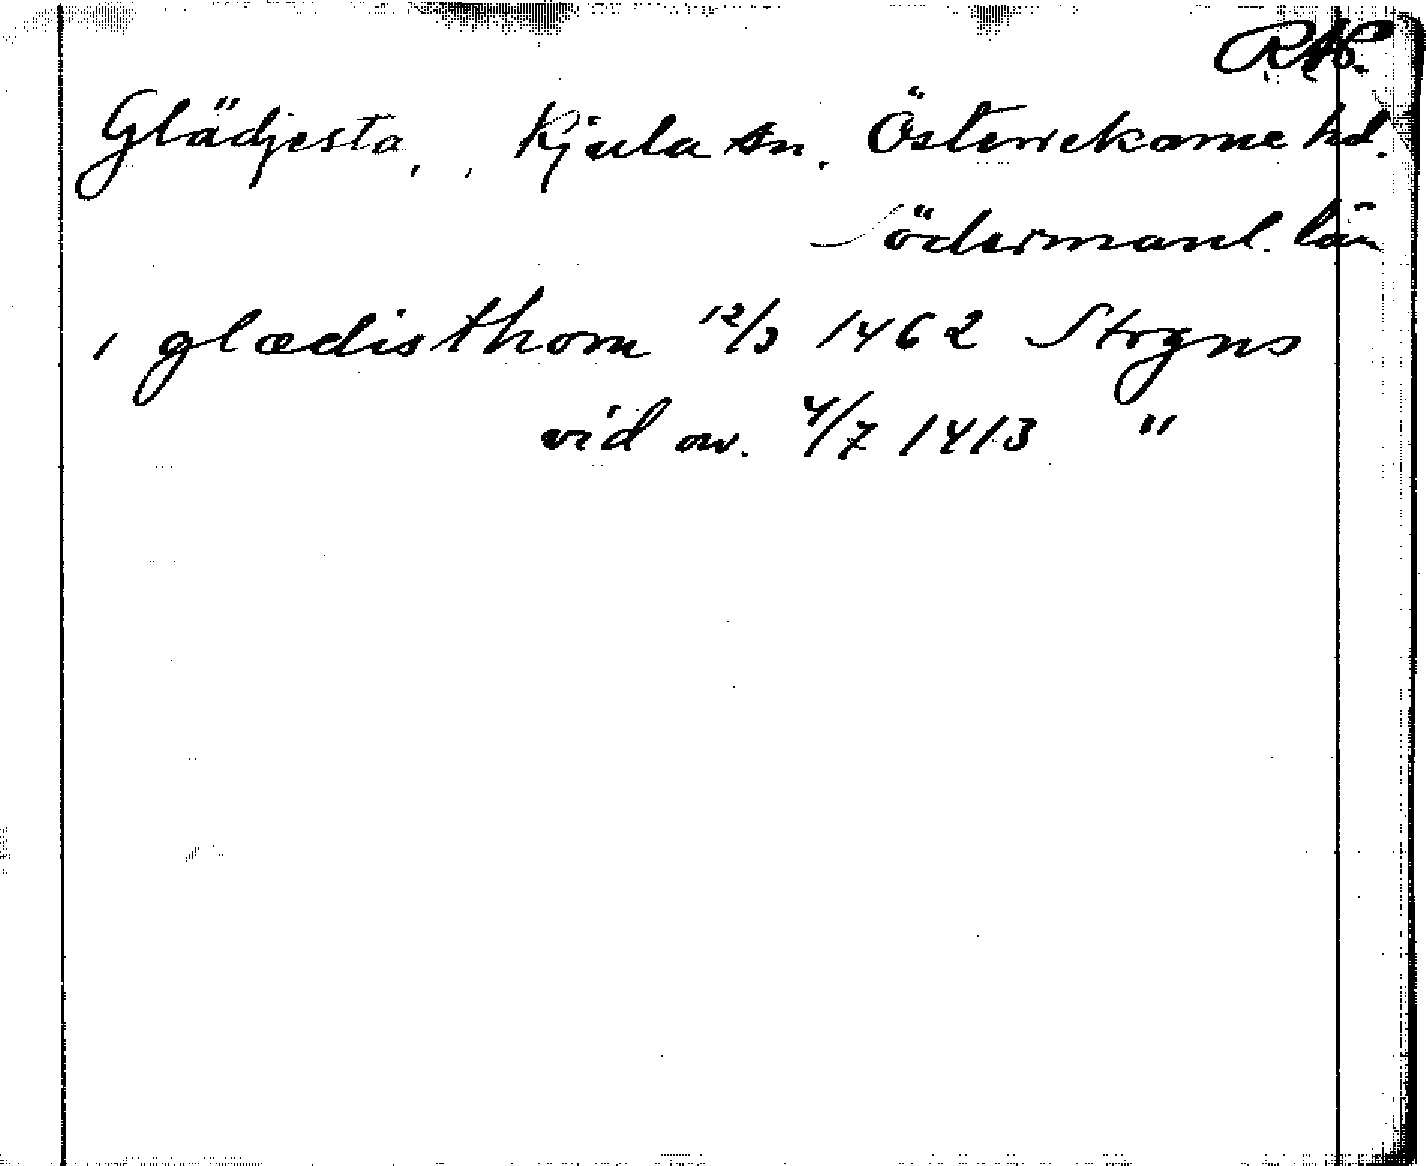 RAP.
Glädjesta, , Kjula sn. Österrekarne hd.
Södermanl. län
i glædisthom 12/3 1462 Strgns
vid av. 4/7 1413 "